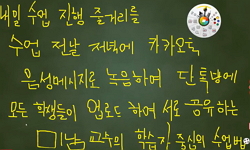 내일 수업 진행 줄거리를
수업 전날 저녁에 카카오톡
음성메시지로 녹음하여 단톡방에
모든 학생들이 업로드 하여 서로 공유하는
교수의 학습자 중심의 수업법